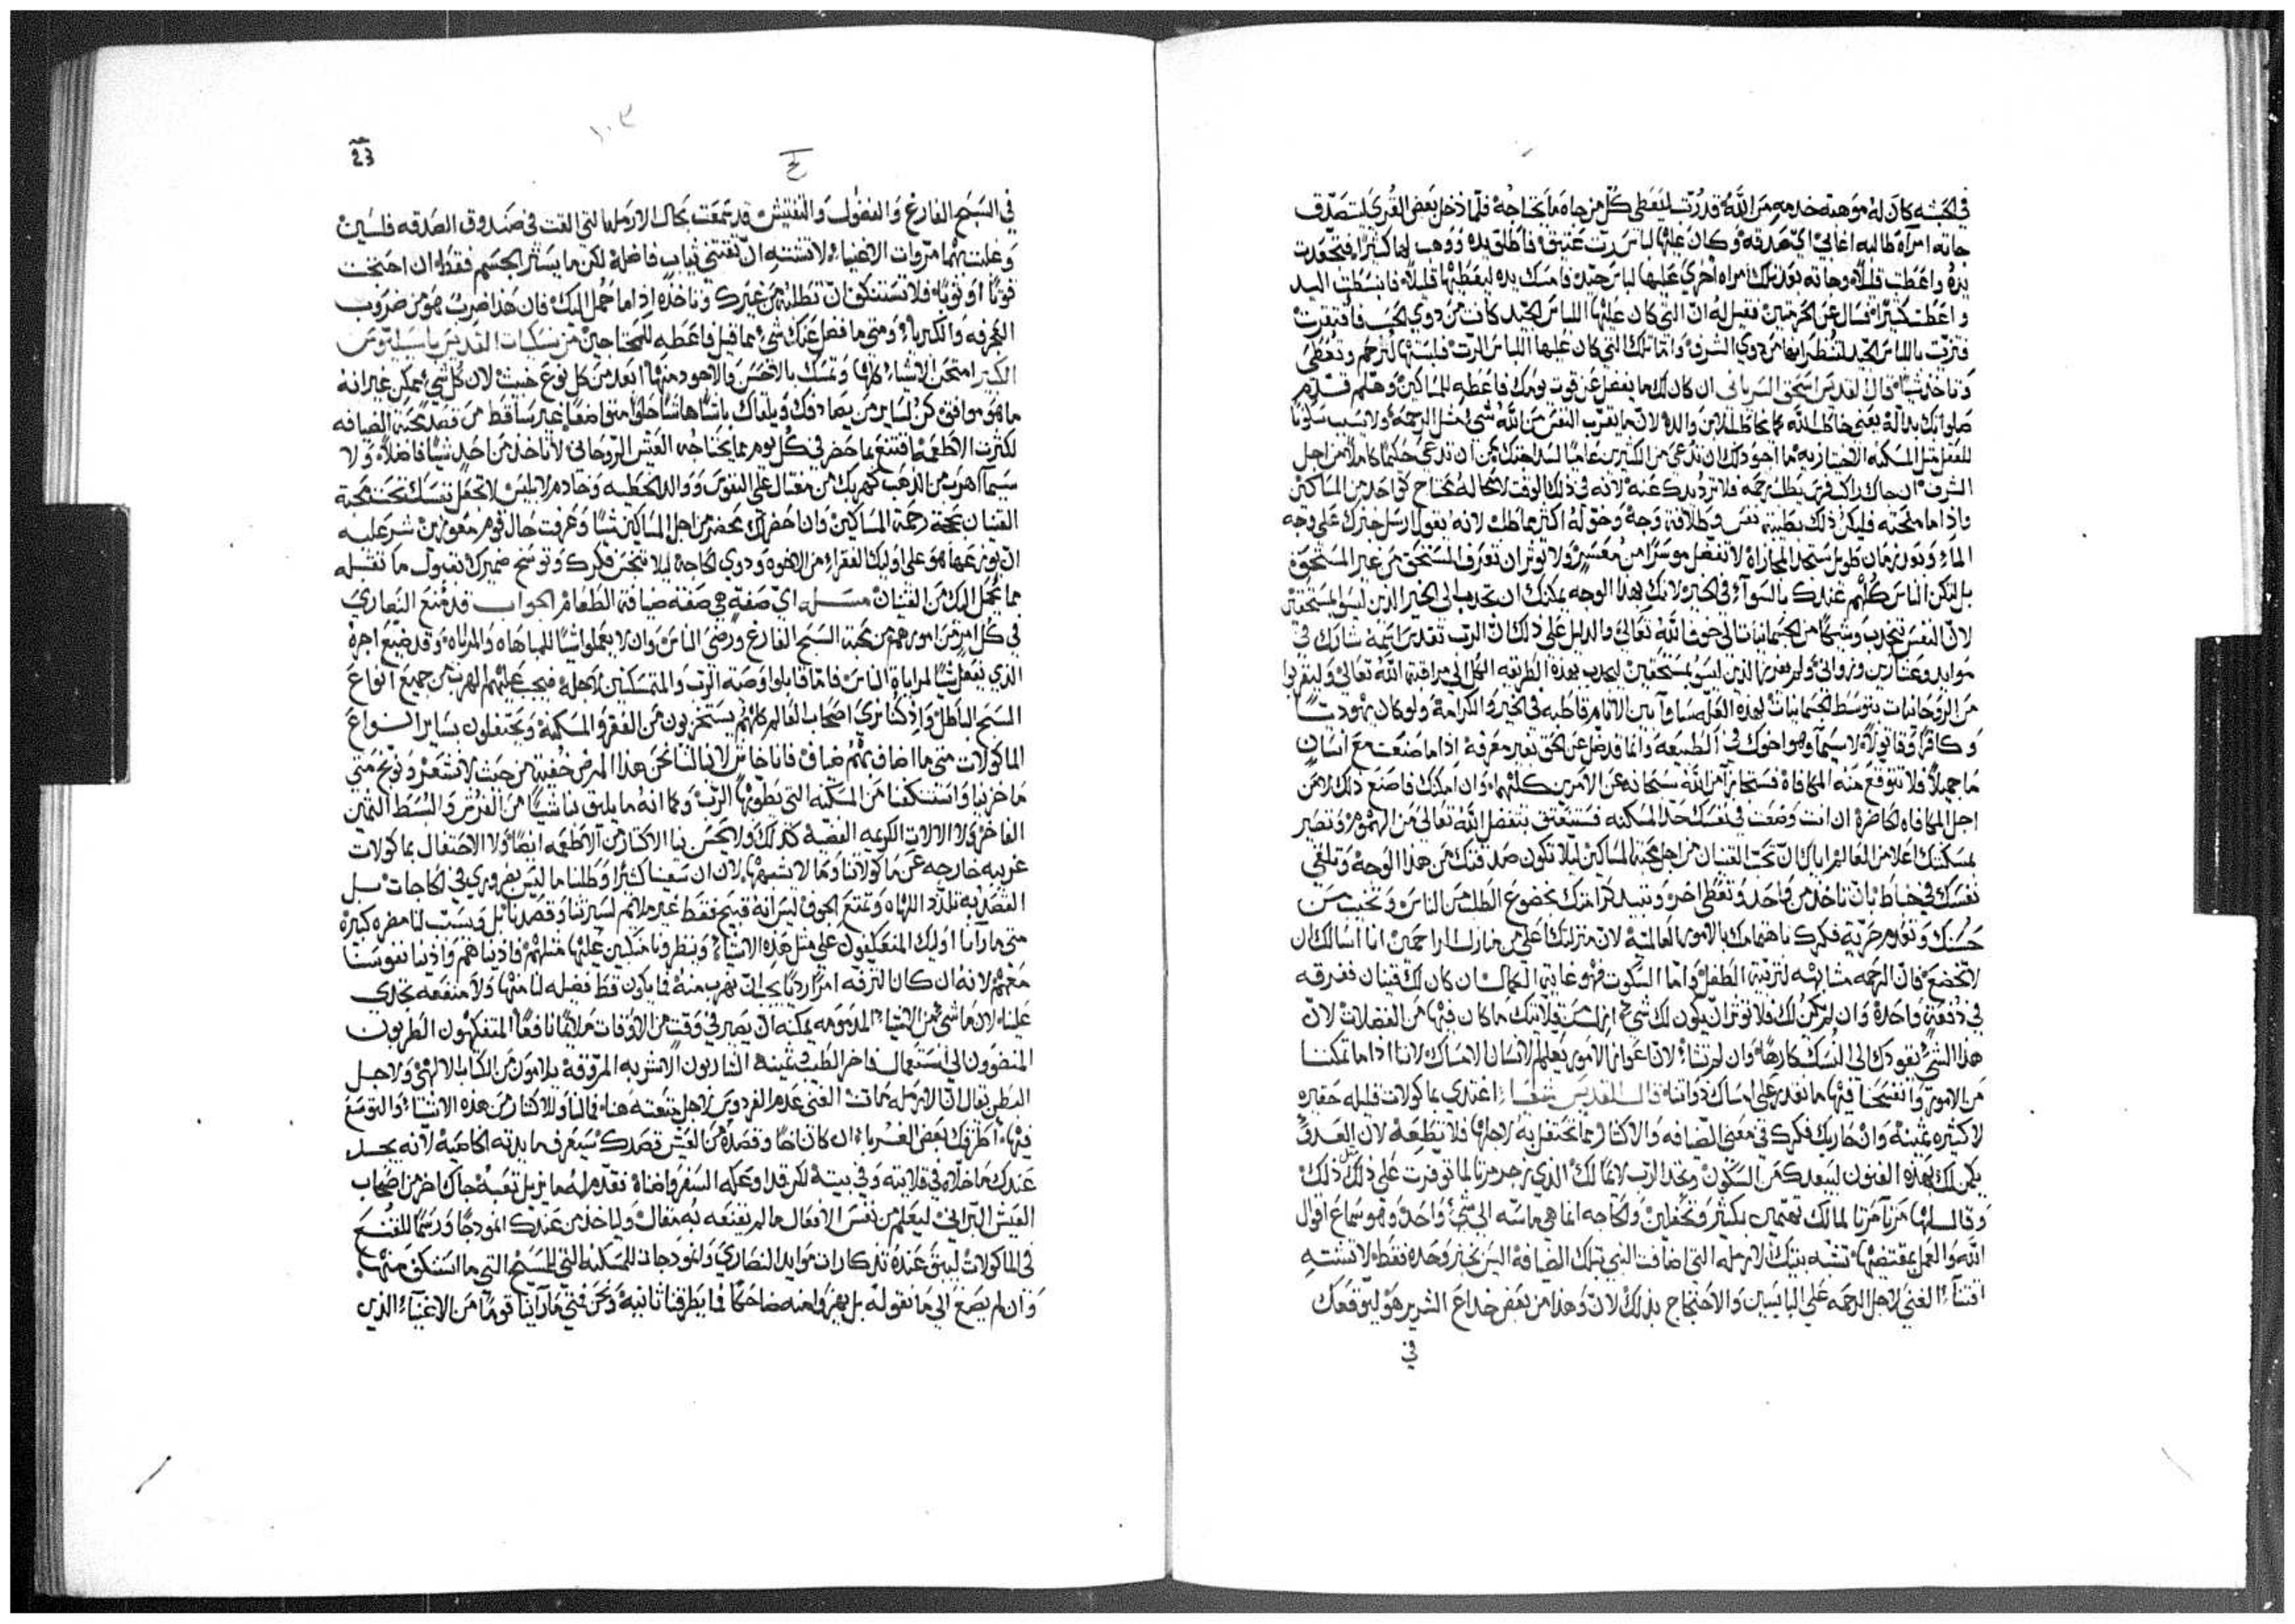 في الحبشه كان له موهبته خدمه من الله قدرت ليعطي كل من جاه ما يحتاجه فلما دخل بعض القري ليتصدق
جاته امرأة طالبه اغابي اي صدقه وكان عليها لباس رث عتيق فاطلق يده ووهب لها كثيرا فتجعدت
يده واعطت قليلا وجاته بعد تلك امراه اخري عليها لباس جيد فامسك يده ليعطيها قليلا فانبسطت اليد
واعطت كثيرا فسال عن الحرمتين فقيل له ان التي كان عليها اللباس الجيد كانت من دوي الحسب فافتقرت
فتزيت باللباس الجيد لشطر انها من دوي الشرف واما تلك التي كان عليها اللباس الرث فلبستها لترحم وتعطي
وتاخذ شيا قال القديس اسحق السرياني ان كان لك ما يفضل عن قوت يومك فاعطه للمساكين وهلم قدم
صلواتك بداله يعني خاطب الله كما يخاطب الابن والده لان ما يقرب النفس من الله شي مثل الرحمه ولا يسبب سكونا
للعقل مثل المسكنه الاختياريه ما اجود لك ان تدعي من الكثيرين عاميا لسداجتك من ان تدعي حكيما كاملا من اجل
الشرف ان جاك راكب فرس يطلب رحمه فلا ترد يدك عنه لانه في ذلك الوقت لا محاله محتاج كواحد من المساكين
واذا ما منحته فليكن ذلك بطيبة نفس وطلاقة وجه وخوله اكثر مما طلب لانه يقول ارسل خبزك علي وجه
الماء وبدون زمان طويل ستجد المجازاه لا تفضل موسرا من معسر ولا توثر ان تعرف المستحق من غير المستحق
بل لتكن الناس كلهم عندك بالسوآء في الخير لانك بهذا الوجه يمكنك ان تجذب الي الخير الذين ليسوا مستحقين
لان النفس تنجذب وشيكا من الجسمانيات الي خوف الله تعالي والدليل علي ذلك ان الرب تقدس اسمه شارك في
موايد وعشارين وزواني ولم يفرز الذين ليسوا مستحقين ليجذب بهذه الطريقه الكل الي مراقبة الله تعالي وليتقربوا
من الروحانيات بتوسط الجسمانيات لهذه العله ساوآ بين الانام قاطبه في الخير والكرامه ولو كان يهوديا
وكافرا وقاتولا لاسيما وهو اخوك في الطبيعه وانما قد ضل عن الحق بغير معرفه اذا ما صنعت مع انسان
ما جميلا فلا تتوقع منه المكافاه فستجازآ من الله سبحانه عن الامرين كليهما وان امكنك فاصنع ذلك لا من
اجل المكافاه الحاضره ان انت وضعت في نفسك حد المسكنه فستنعتق بتفضل الله تعالي من الهموم وتصير
بمسكنتك اعلا من العالم اياك ان تحب القنيان من اجل محبة المساكين ليلا تكون صدقتك من هذا الوجه وتلقي
نفسك في خباط بان تاخذ من واحد وتعطي اخر وتبيد كرامتك بخضوع الطلب من الناس وتخيب من
حسنك وتعدم حرية فكرك باهتمامك بالامور العالميه لان منزلتك اعلي من منازل الراحمين انا اسالك ان
لا تخضع فان الرحمه مشابهه لتربية الطفل واما السكوت فهو غاية الكمال ان كان لك قنيان ففرقه
في دفعة واحده وان لم يكن لك فلا توثر ان يكون لك شي لان
هذا الشي يقودك الي النسك كارها وان لم تشاء لان عوايز الامور يعلم الانسان الامساك لاننا اذا ما تمكنا
من الامور وانفسحنا فيها ما نقدر علي امساك ذواتنا قال القديس شعيا اغتدي بماكولات قليله حقيره
لا كثيره ثمينه وان حاربك فكرك في معني الضيافه والاكثار مما تحتفل به لاجلها فلا تطعه لان العدو
يكمن لك بهذه الفنون ليبعدك من السكون وتجد الرب لايما لك الذي زجر مرتا لما توفرت علي مثل ذلك
وقال لها مرتا مرتا لما لك تهتمين بكثير وتحفلين والحاجه انما هي ماسه الي شي واحد وهو سماع اقوال
الله والعمل بمقتضاها تشبه بتيك الارمله التي ضافت النبي تلك الضيافه اليس بخبز وحده فقط لا تشتهي
اقتنآء الغني لاجل الرحمه علي البايسين والاحتجاج بذلك لان وهذا من بعض خداع الشرير هو ليوقعك
في
23
١٠٣
في السبح الفارغ والفضول والتفتيش قد سمعت بحال الارمله التي القت في صندوق الصدقه فلسين
وعلت بهما مروات الاغنياء لا تشتهي ان تقتني ثياب فاضله لكن ما يستر الجسم فقط ان احتجت
قوتا او ثوبا فلا تستنكف ان تطلبه من غيرك وتاخذه اذا ما حمل اليك فان هذا ضرب هو من ضروب
العجرفه والكبرياء ومتي ما فضل عنك شي مما قيل فاعطه للمحتاجين من نسكيات القديس باسيليوس
الكبير امتحن الاشياء كلها وتمسك بالاحسن والاجود منها ابعد من كل نوع خبيث لان كل شي يمكن غير انه
ما هو موافق كن لساير من يصادفك ويلقاك باشا هاشا حلوا متواضعا غير ساقط من قصد محبة الضيافه
لكثرت الاطعمه اقتنع بما حضر في كل يوم مما يحتاجه العيش الروحاني لا تاخذ من احد شيا فاضلا ولا
سيما اهرب من الذهب كهربك من مغتال علي النفوس ووالد الخطيه وخادم لابليس لا تجعل نفسك تحت محبة
القنيان بحجة رحمة المساكين وان احضر لك محضر من اجل المساكين شيا وعرفت حال قوم معوزين شر عليه
ان يوزعها هو علي اوليك الفقراء من الاخوه ودوي الحاجه ليلا تنجس فكرك وتوسخ ضميرك بقبول ما تقتبله
مما يحمل اليك من القنيان مسله اي صفة هي صفة ضيافة الطعام الجواب قد منع النصاري
في كل امر من امورهم من محبة السبح الفارغ ورضي الناس وان لا يعملوا شيا للمباهاه والمراياه وقد ضيع اجره
الذي يفعل شيا لمراياة الناس فاما قابلوا وصية الرب والمتمسكنين لاجله فيجب عليهم الهرب من جميع انواع
السبح الباطل واذ كنا نري اصحاب العالم كانهم يستخزيون من الفقر والمسكنه ويحتفلون بساير انواع
الماكولات متي ما اضافهم ضاف فانا خاشي لا ينالنا نحن هذا المرض خفية من حيث لا نشعر ونوبخ متي
ما خزينا واستنكفنا من المسكنه التي يطوبها الرب وكما انه ما يليق بنا شيا من الفرش والبسط الثمين
الفاخر ولا الالات الكريمه الفضية كذلك ولا يحسن بنا الاكثار من الاطعمه ايضا ولا الاحتفال بماكولات
غريبه خارجه عن ماكولاتنا وما لا تشبهها لان ان سعينا كثيرا وطلبنا ما ليس بضروري في الحاجات بل
القصد به تلدد اللهاه وتمتع الجوف ليس انه قبيح فقط غير ملايم لسيرتنا وقصدنا بل ويسبب لنا مضره كبيره
متي ما رآنا اوليك المنعكفون علي مثل هذه الاشياء وينظرونا منكبين عليها مثلهم فاديناهم وادينا نفوسنا
معهم لانه ان كان الترفه امرا رديا يجب ان نهرب منه فما يكون قط فضيله لنا منها ولا منفعه تجدي
علينا لان ما شي من الاشياء المذمومه يمكنه ان يصير في وقت من الاوقات ملايما نافعا المتفكهون الطربون
المنضوون الي استعمال فاخر الطيب وثمينه الشاربون الاشربه المروقه يلامون من الكتاب الالهي ولاجل
البطر يقال ان الارمله ماتت الغني عدم الفردوس لاجل تنعمه هنا فما لنا وللاكثار من هذه الاشياء والتوسع
فيها اطرقك بعض الغرباء ان كان اخا وقصده من العيش قصدك سيعرف مايدته الخاصيه لانه يجد
عندك ما خلاه في قلايته وفي بيته لكن قد اوعكه السفر واضناه فقدم له ما يزيل تعبه جاك اخر من اصحاب
العيش البراني ليعلم من نفس الافعال ما لم يقنعه به مقالك وليأخذ من عندك انموذجا ورسما للقنع
في الماكولات ليبق عنده تذكارات موايد النصاري وانموذجات للمسكنه التي للمسيح التي ما استنكف منها
وان لم يصغ الي ما نقوله بل يهزوا منه ضاحكا فما يطرقنا ثانية ونحن فمتي ما رآينا قوما من الاغنيآء الذين